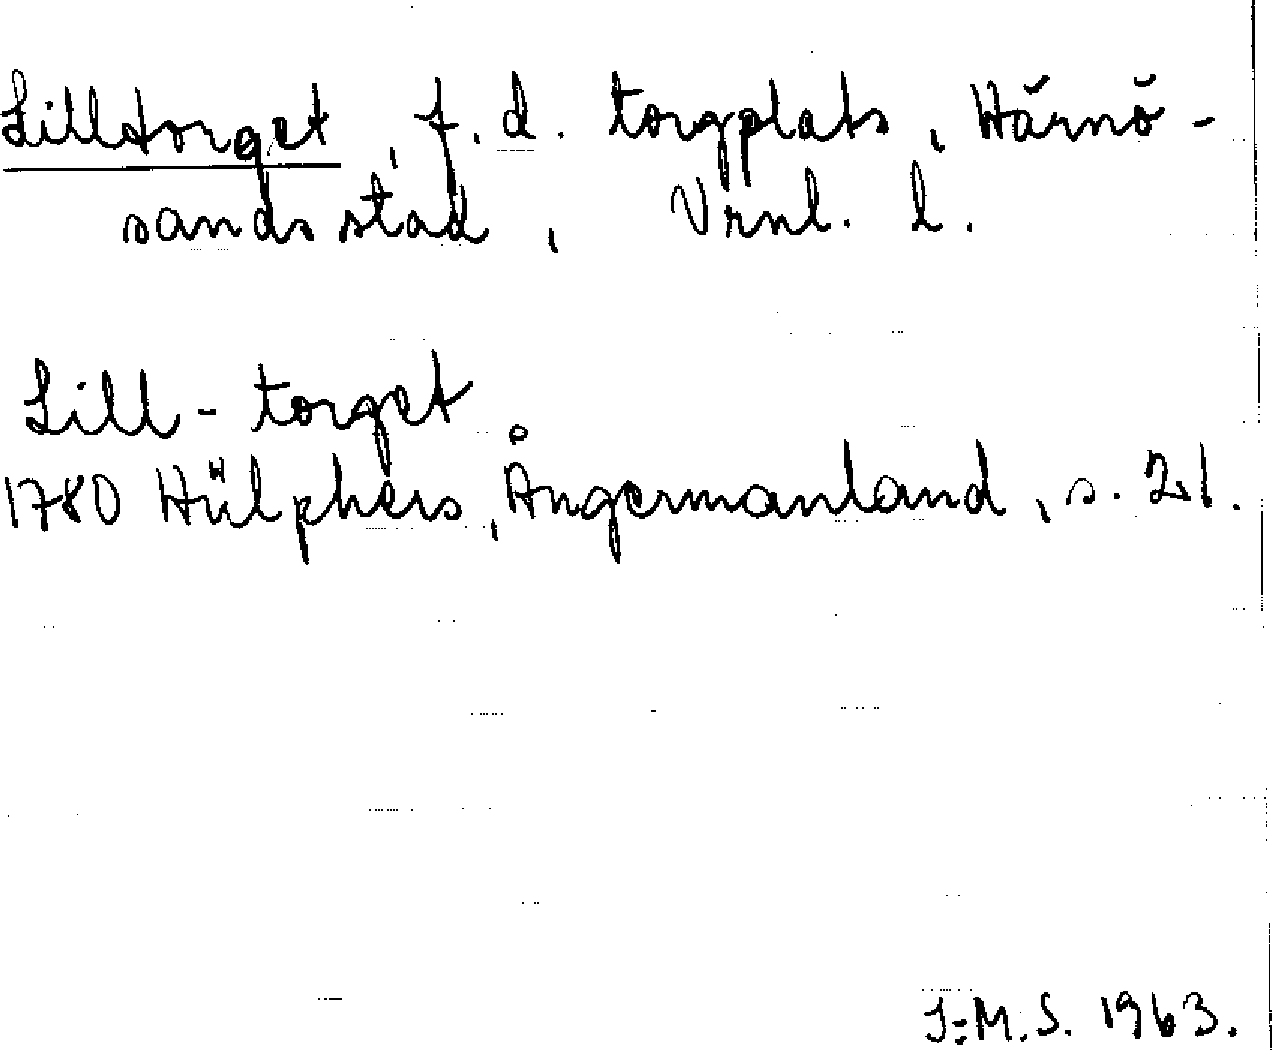 Lilltorget, f. d. torgplats, Härnö-
sands stad, Vrnl. l.
Lill-torget
1780 Hülphers, Ångermanland, s. 21.
I:M.S. 1963.